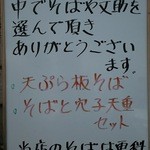 中でそばや文助を
選んで頂き
ありがとうござい
ます
天ぷら板そば
そばと穴子天重
セット
当店のそばは更科